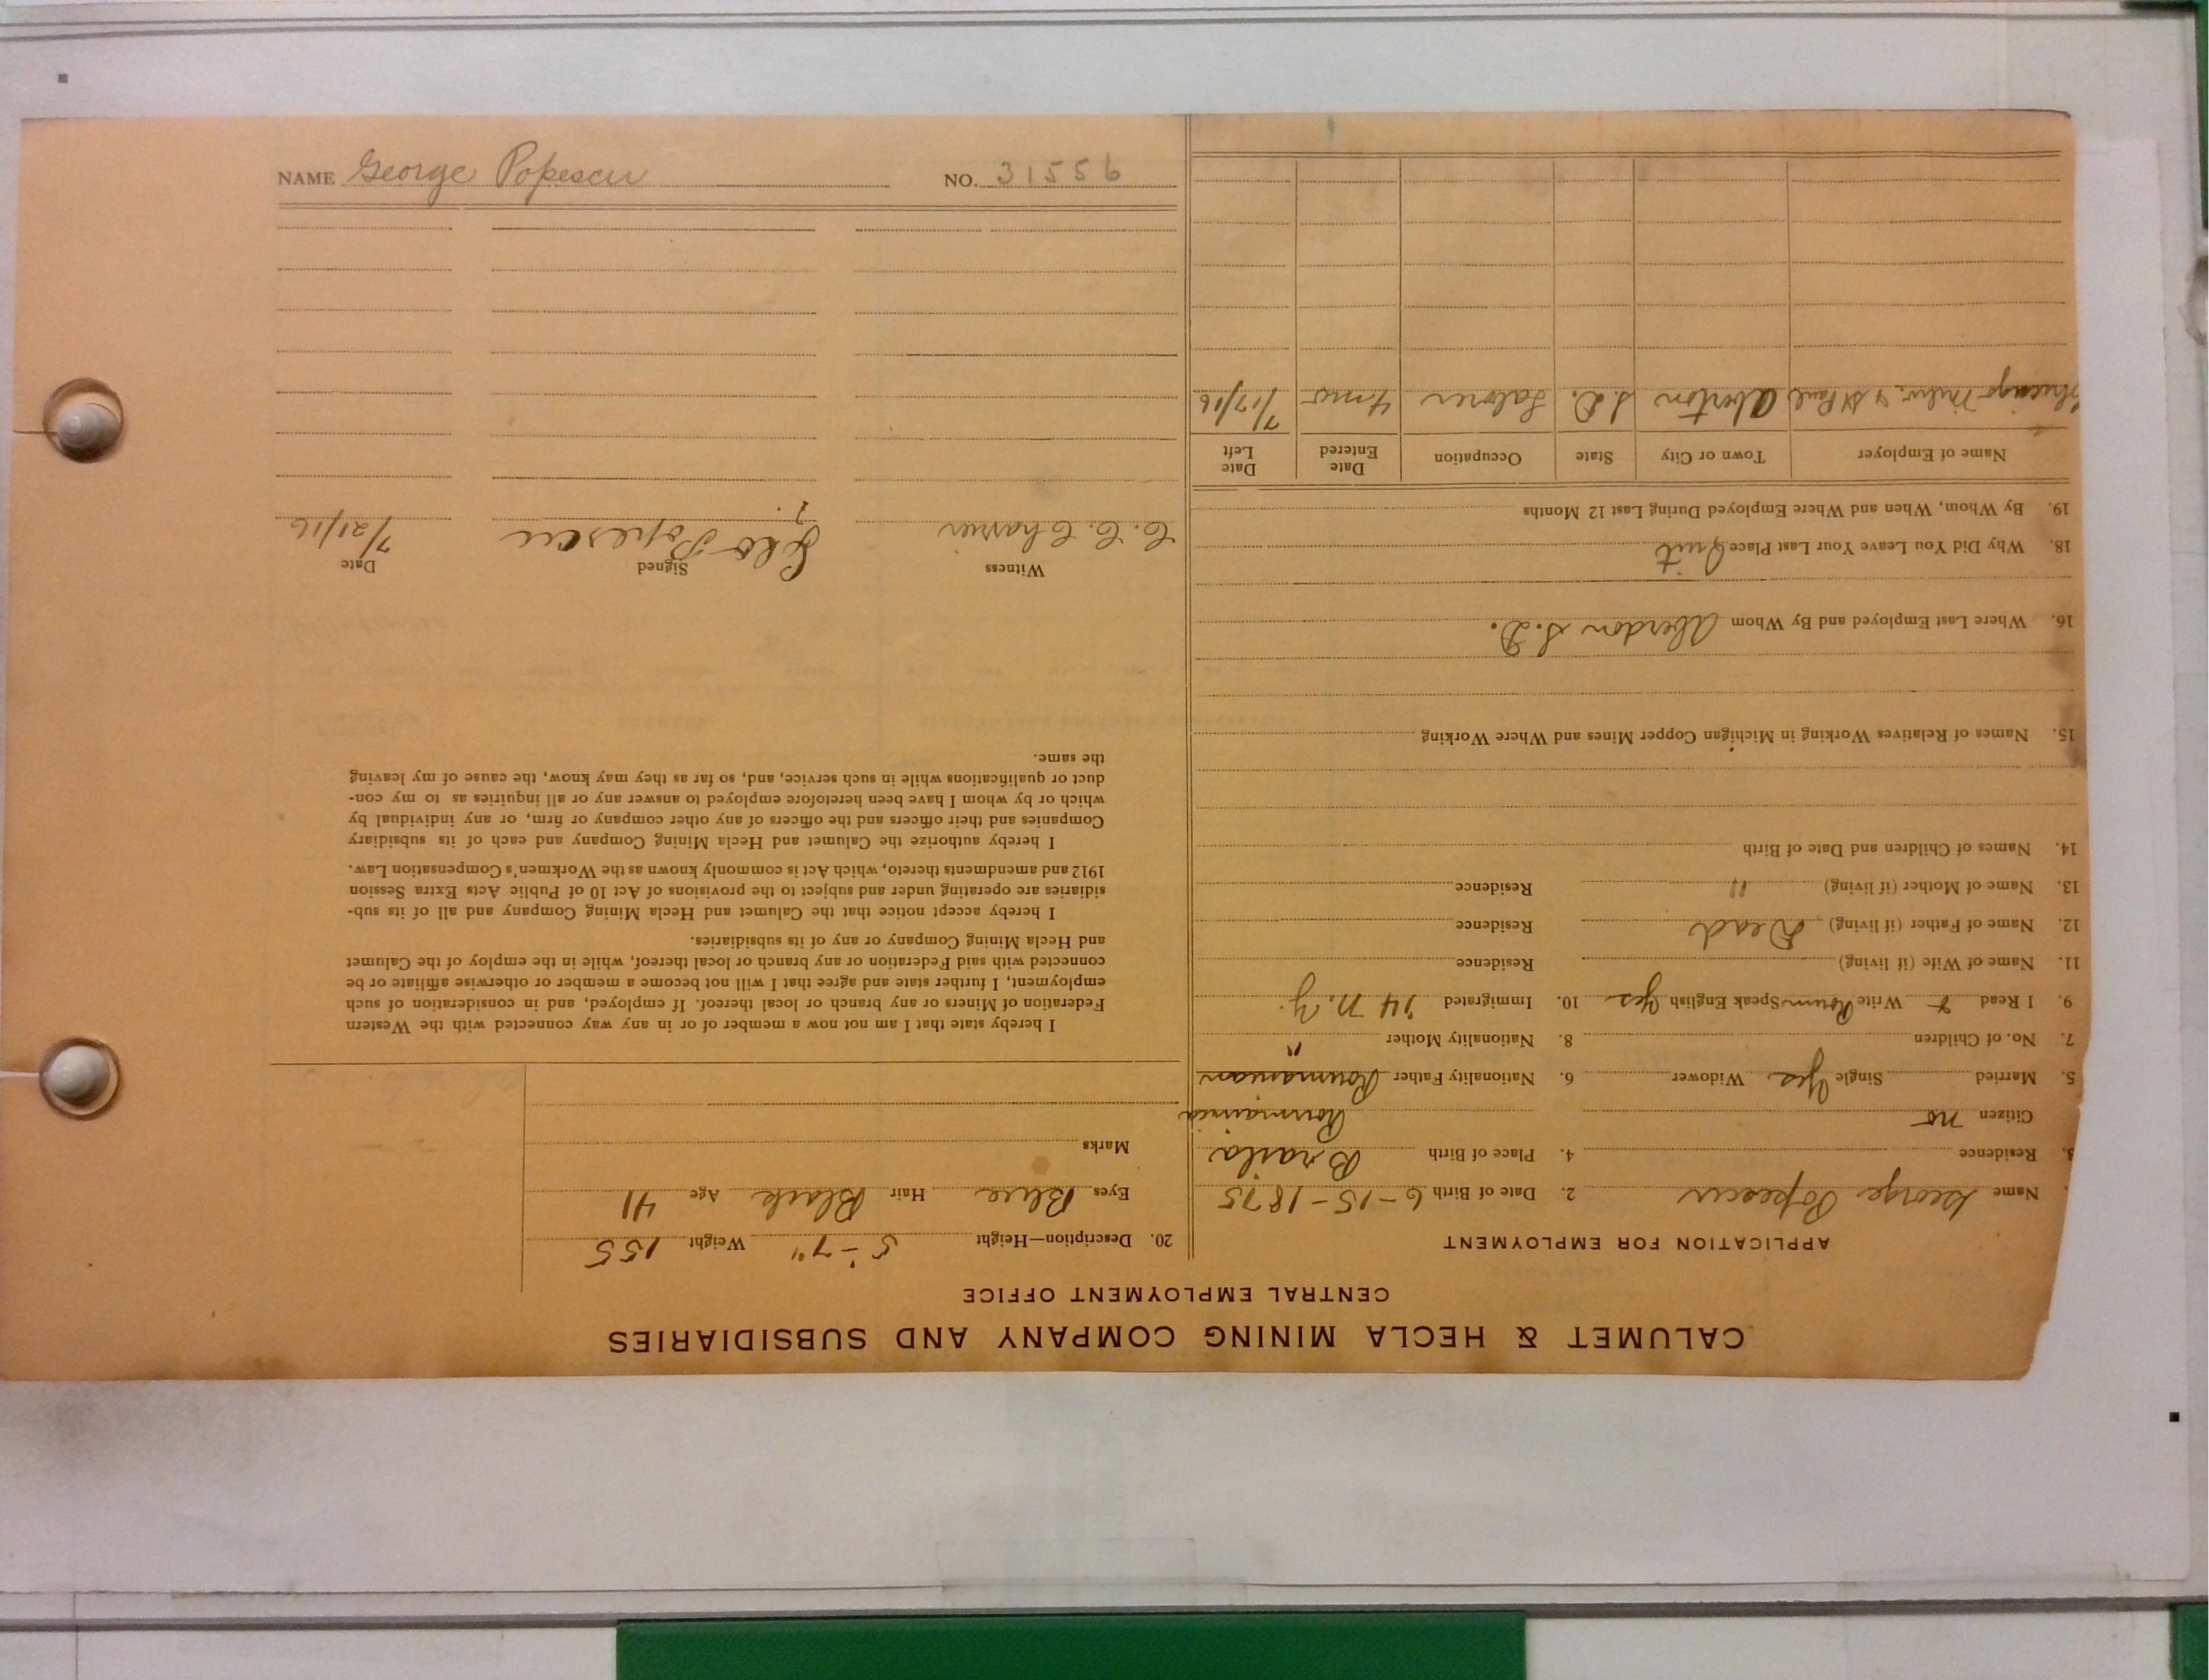 NAME George Popescu NO. 31556
CALUMET & HECLA MINING COMPANY AND SUBSIDIARIES
CENTRAL EMPLOYMENT OFFICE
APPLICATION FOR EMPLOYMENT
Name George Popescu 2. Date of Birth 6-15-1875
3. Residence 4. Place of Birth Braila
Citizen no Roumania
5. Married Single Yes Widower 6. Nationality Father Roumanian
7. No. of Children 8. Nationality Mother "
9. I Read & Write Roum Speak English Yes 10. Immigrated '14 N.Y.
11. Name of Wife (if living) Residence
12. Name of Father (if living) Dead Residence
13. Name of Mother (if living) " Residence
14. Names of Children and Date of Birth
15. Names of Relatives Working in Michigan Copper Mines and Where Working
16. Where Last Employed and By Whom Aberdon S.D.
18. Why Did You Leave Your Last Place Quit
19. By Whom, When and Where Employed During Last 12 Months
Name of Employer Town or City State Occupation Date Entered Date Left
Chicago Milw. & St Paul Aberton S.D. Laborer 4 mo 7/17/16
20. Description—Height 5'-7" Weight 155
Eyes Blue Hair Black Age 41
Marks
I hereby state that I am not now a member of or in any way connected with the Western
Federation of Miners or any branch or local thereof. If employed, and in consideration of such
employment, I further state and agree that I will not become a member or otherwise affiliate or be
connected with said Federation or any branch or local thereof, while in the employ of the Calumet
and Hecla Mining Company or any of its subsidiaries.
I hereby accept notice that the Calumet and Hecla Mining Company and all of its sub-
sidiaries are operating under and subject to the provisions of Act 10 of Public Acts Extra Session
1912 and amendments thereto, which Act is commonly known as the Workmen's Compensation Law.
I hereby authorize the Calumet and Hecla Mining Company and each of its subsidiary
Companies and their officers and the officers of any other company or firm, or any individual by
which or by whom I have been heretofore employed to answer any or all inquiries as to my con-
duct or qualifications while in such service, and, so far as they may know, the cause of my leaving
the same.
Witness Signed Date
C. C. Geo Popescu 7/21/16